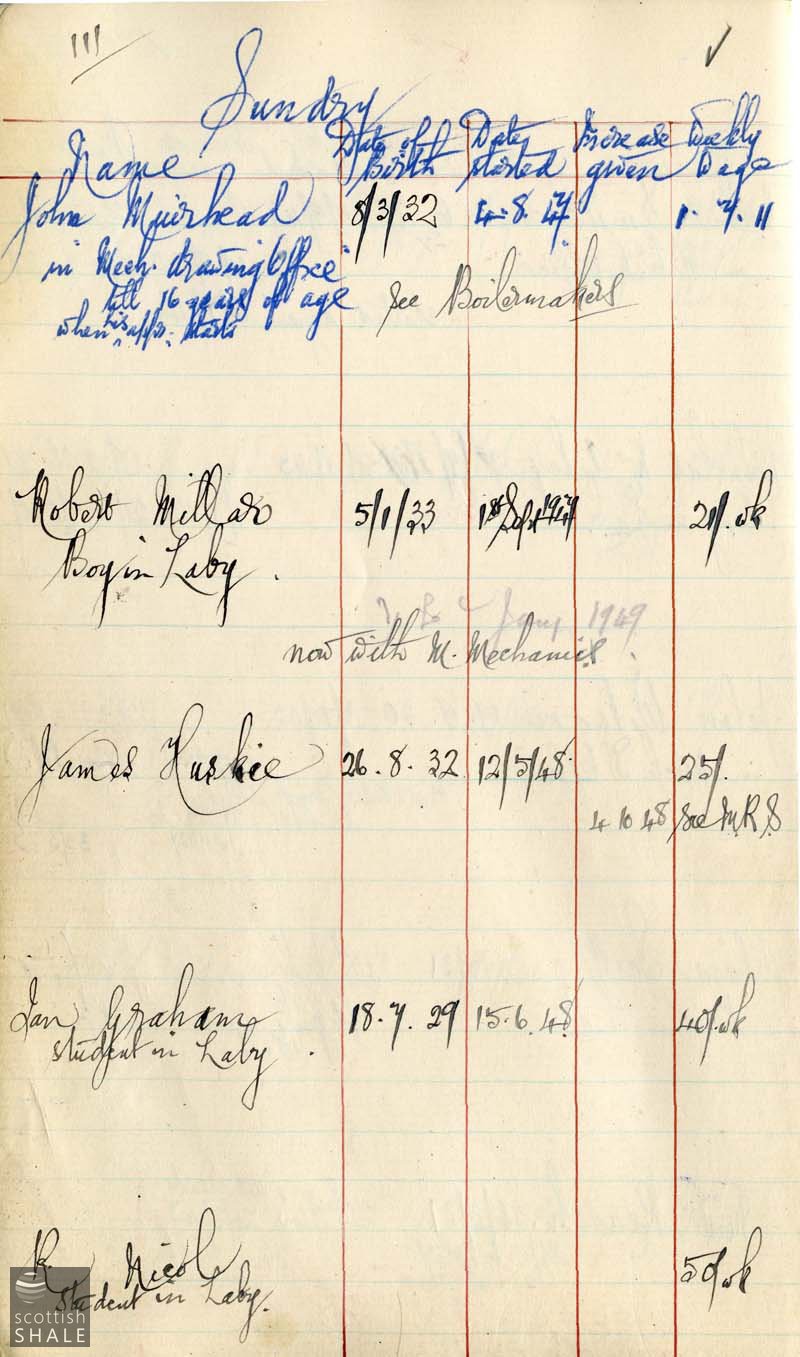 111
Sundry
Name Date of Birth Date started Increase given Weekly Wage
John Muirhead 8/3/32 4.8.47 1.7.11
in Mech. drawing Office
till 16 years of age
when his app. starts
see Boilermakers
Robert Millar 5/1/33 1st Sept 1947 21/. wk
Boy in Laby.
Jany 1949
now with M. Mechanics.
James Huskie 26.8.32 12/5/48 25/.
4 10 48 See M.R.S
Ian Graham 18.7.29 15.6.48 40/. wk
student in Laby.
R. Nicol 50/ wk
student in Laby.
scottish
SHALE